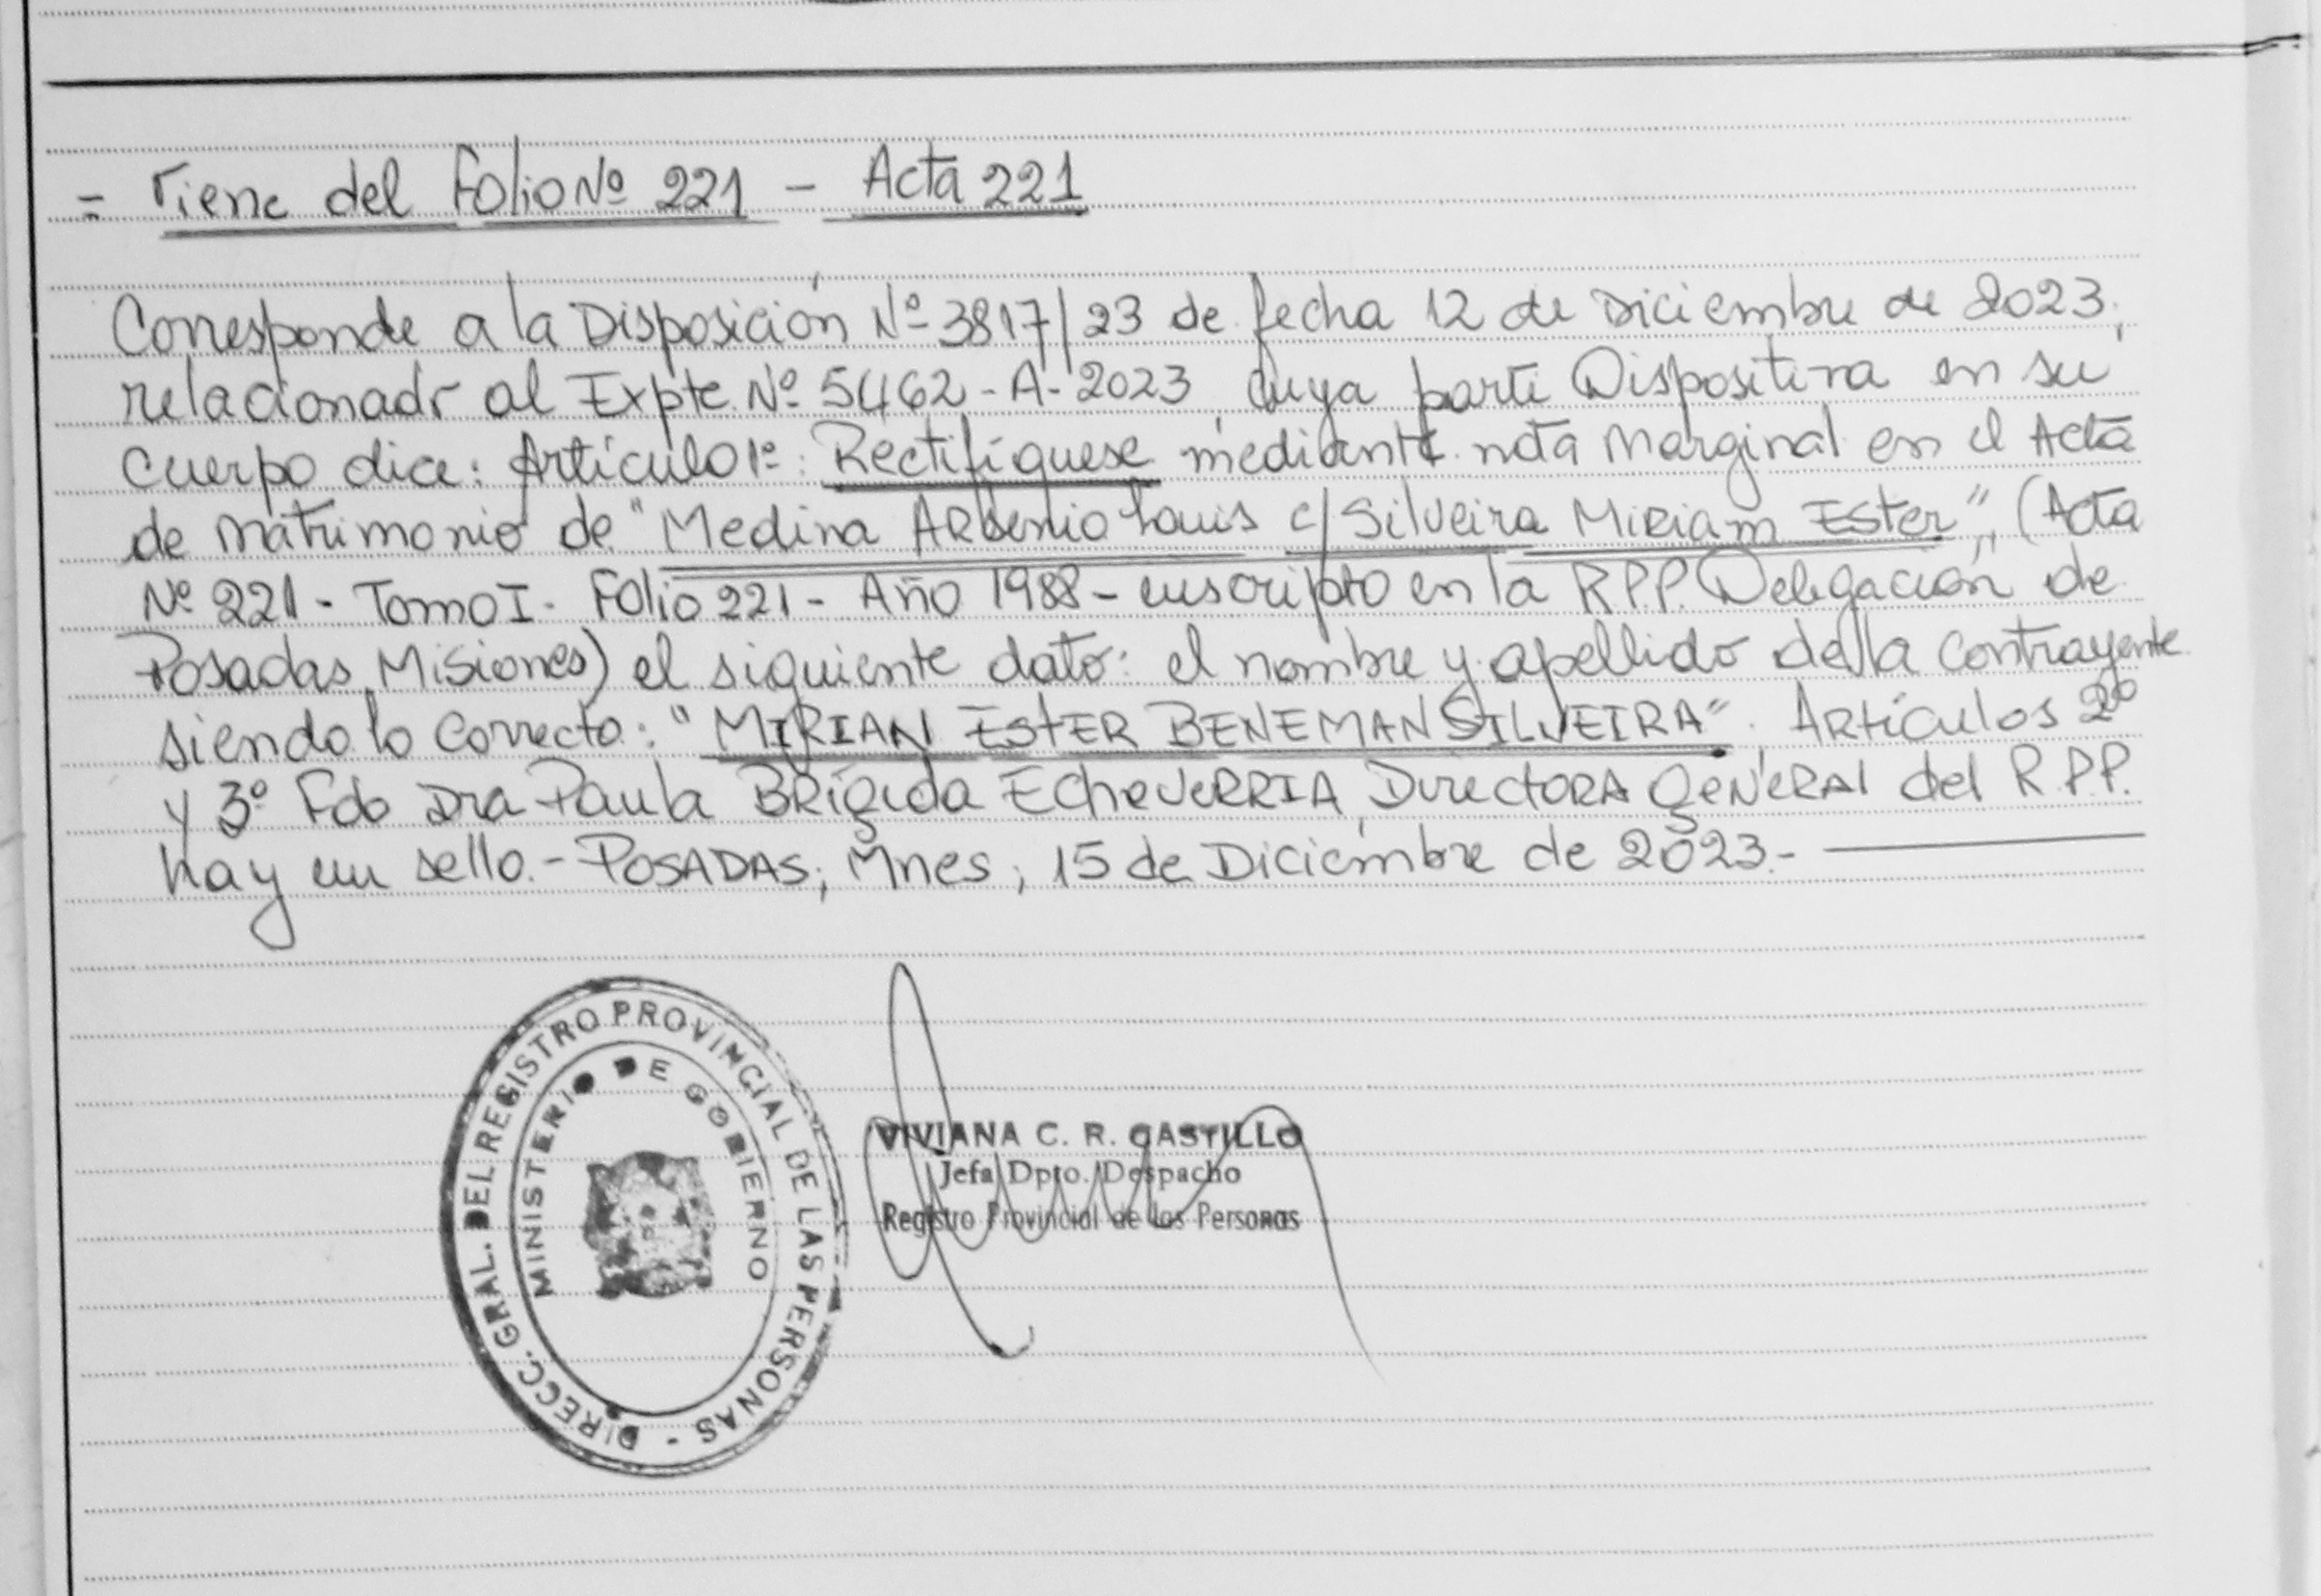 = Viene del Folio Nº 221 - Acta 221
Corresponde a la Disposición Nº 3817/23 de fecha 12 de Diciembre de 2023,
relacionado al Expte. Nº 5462-A-2023, cuya parte Dispositiva en su
cuerpo dice: Artículo 1º: Rectifíquese mediante nota Marginal en el Acta
de Matrimonio de "Medina Arsenio Louis c/ Silveira Miriam Ester", (Acta
Nº 221 - Tomo I - Folio 221 - Año 1988 - inscripto en la R.P.P. Delegación de
Posadas, Misiones) el siguiente dato: el nombre y apellido de la contrayente
siendo lo correcto: "MIRIAN ESTER BENEMAN SILVEIRA". Artículos 2º
y 3º Fdo Dra Paula BRígida EcheVERRIA, DirectORA GeNeRAl del R.P.P.
hay un sello.- POSADAS, Mnes, 15 de Diciembre de 2023.-
DIRECC. GRAL. DEL REGISTRO PROVINCIAL DE LAS PERSONAS -
MINISTERIO DE GOBIERNO
VIVIANA C. R. CASTILLO
Jefa Dpto. Despacho
Registro Provincial de las Personas